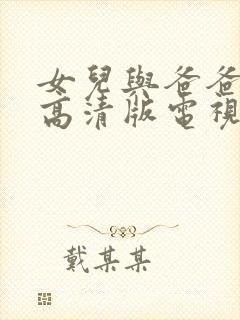 女兒與爸爸
高清版電視
戴某某